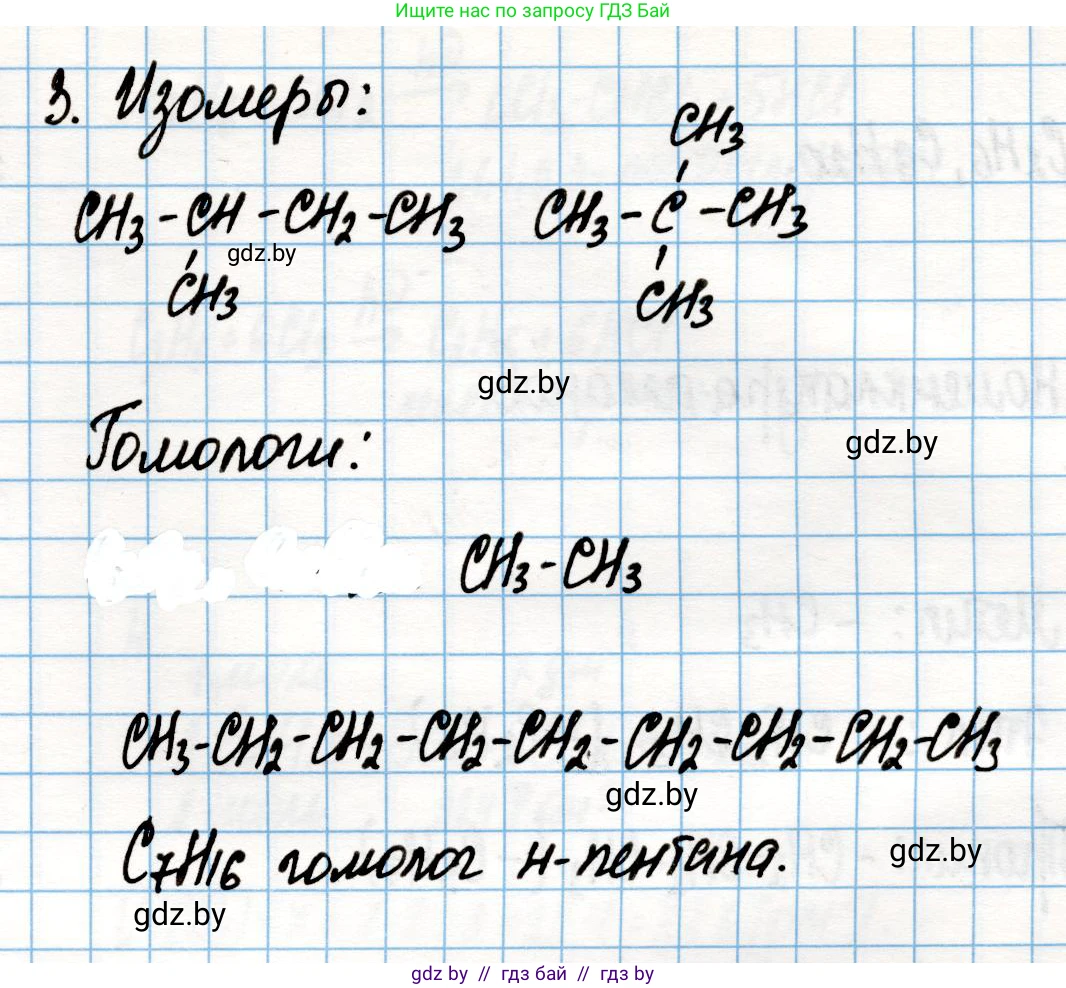 Ищите нас по запросу ГДЗ Бай
3. Изомеры:
CH3
CH3 - CH - CH2 - CH3 CH3 - C - CH3
gdz.by
CH3 CH3
gdz.by
Гомологи:
gdz.by
CH3 - CH3
CH3 - CH2 - CH2 - CH2 - CH2 - CH2 - CH2 - CH2 - CH3
gdz.by
C7H16 гомолог н-пентана.
gdz.by
gdz.by
gdz by // гдз бай // гдз by